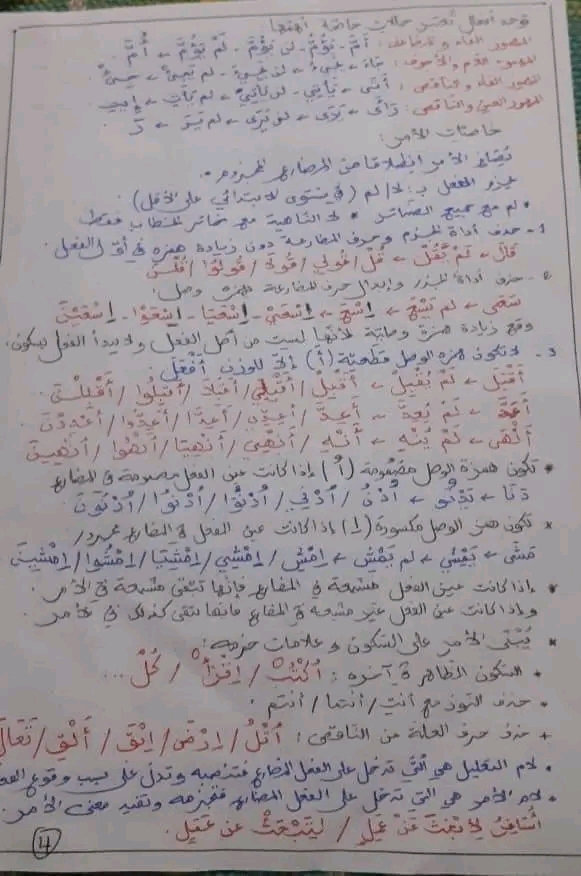 توجد أفعال تعتبر حالات خاصة أهمها:
المهموز الفاء والمضاعف: أمَّ - يَؤُمُّ - لن يَؤُمَّ - لم يَؤُمَّ ← أُمَّ
المهموز اللام والأجوف: جاءَ ← يجيءُ ← لن يجيءَ - لم يجئْ ← جِئْ
المهموز الفاء والناقص: أتى ← يأتي - لن يأتيَ ← لم يأتِ ← إيتِ
المهموز العين والناقص: رأى ← يَرَى ← لن يَرَى ← لم يَرَ ← رَ
خاصيات الأمر:
يُصاغ الأمر انطلاقا من المضارع المجزوم.
يجزم الفعل بـ: لا / لم (في مستوى الابتدائي على الأقل)
* لم مع جميع الضمائر * لا الناهية مع ضمائر المخاطب فقط
1- حذف أداة الجزم وحرف المضارعة دون زيادة همزة في أول الفعل
قالَ ← لَمْ يَقُلْ ← قُلْ / قُولي / قُولاَ / قُولُوا / قُلْنَ
2- حذف أداة الجزم وإبدال حرف المضارعة همزة وصل:
سَعَى ← لم يَسْعَ ← اِسْعَ ← اِسْعَيْ - اِسْعَيَا - اِسْعَوْا - اِسْعَيْنَ
وقع زيادة همزة وصلية لأنها ليست من أصل الفعل ولا يبدأ الفعل بسكون.
3- لا تكون همزة الوصل قطعية (أ) إلا للوزن أَفْعَلَ.
أَقْبَلَ ← لَمْ يُقْبِلْ ← أَقْبِلْ / أَقْبِلِي / أَقْبِلاَ / أَقْبِلُوا / أَقْبِلْنَ
أَعَدَّ ← لَمْ يُعِدَّ ← أَعِدَّ / أَعِدِّي / أَعِدَّا / أَعِدُّوا / أَعْدِدْنَ
أَنْهَى ← لَمْ يُنْهِ ← أَنْهِ / أَنْهِي / أَنْهِيَا / أَنْهُوا / أَنْهِينَ
* تكون همزة الوصل مضمومة (اُ) إذا كانت عين الفعل مضمومة في المضارع
دَنَا ← يَدْنُو ← اُدْنُ / اُدْنِي / اُدْنُوَا / اُدْنُوا / اُدْنُونَ
* تكون همزة الوصل مكسورة (اِ) إذا كانت عين الفعل في المضارع مجرور /
مَشَى ← يَمْشِي ← لم يَمْشِ ← اِمْشِ / اِمْشِي / اِمْشِيَا / اِمْشُوا / اِمْشِينَ
* إذا كانت عين الفعل مشبعة في المضارع فإنها تبقى مشبعة في الأمر.
وإذا كانت عين الفعل غير مشبعة في المضارع فإنها تبقى كذلك في الأمر.
* يُبْنَى الأمر على السكون وعلامات جزمه:
+ السكون الظاهر في آخره: اُكْتُبْ / اِقْرَأْ / كُلْ ...
+ حذف النون مع أنتِ / أنتما / أنتم:
+ حذف حرف العلة من الناقص: اُتْلُ / اِرْضَ / اِبْقَ / أَلْقِ / تَعَالَ
* لام التعليل هي التي تدخل على الفعل المضارع فتنصبه وتدل على سبب وقوع
* لام الأمر هي التي تدخل على الفعل المضارع فتجزمه وتفيد معنى الأمر.
أُسَافِرُ لِأَبْحَثَ عَنْ عَمَلٍ / لِيَبْحَثْ عن عَمَلٍ.